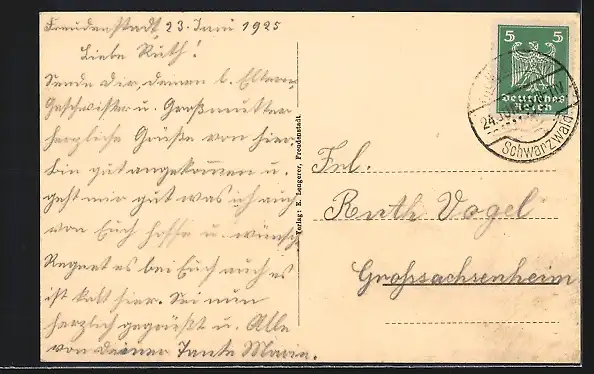 Freudenstadt, 23. Juni 1925
Liebe Ruth!
Sende dir, deinen l. Eltern,
Geschwister u. Großmutter
herzliche Grüße von hier.
Bin gut angekommen u.
geht mir gut was ich auch
von Euch hoffe u. wünsche
Regnet es bei Euch auch es
ist kalt hier. Sei nun
herzlich gegrüßt u. Alle
von deiner Tante Marie.
Verlag: K. Lengerer, Freudenstadt.
5 5
Deutsches
Reich
24.
Schwarzwald
Frl.
Ruth Vogel
Großsachsenheim